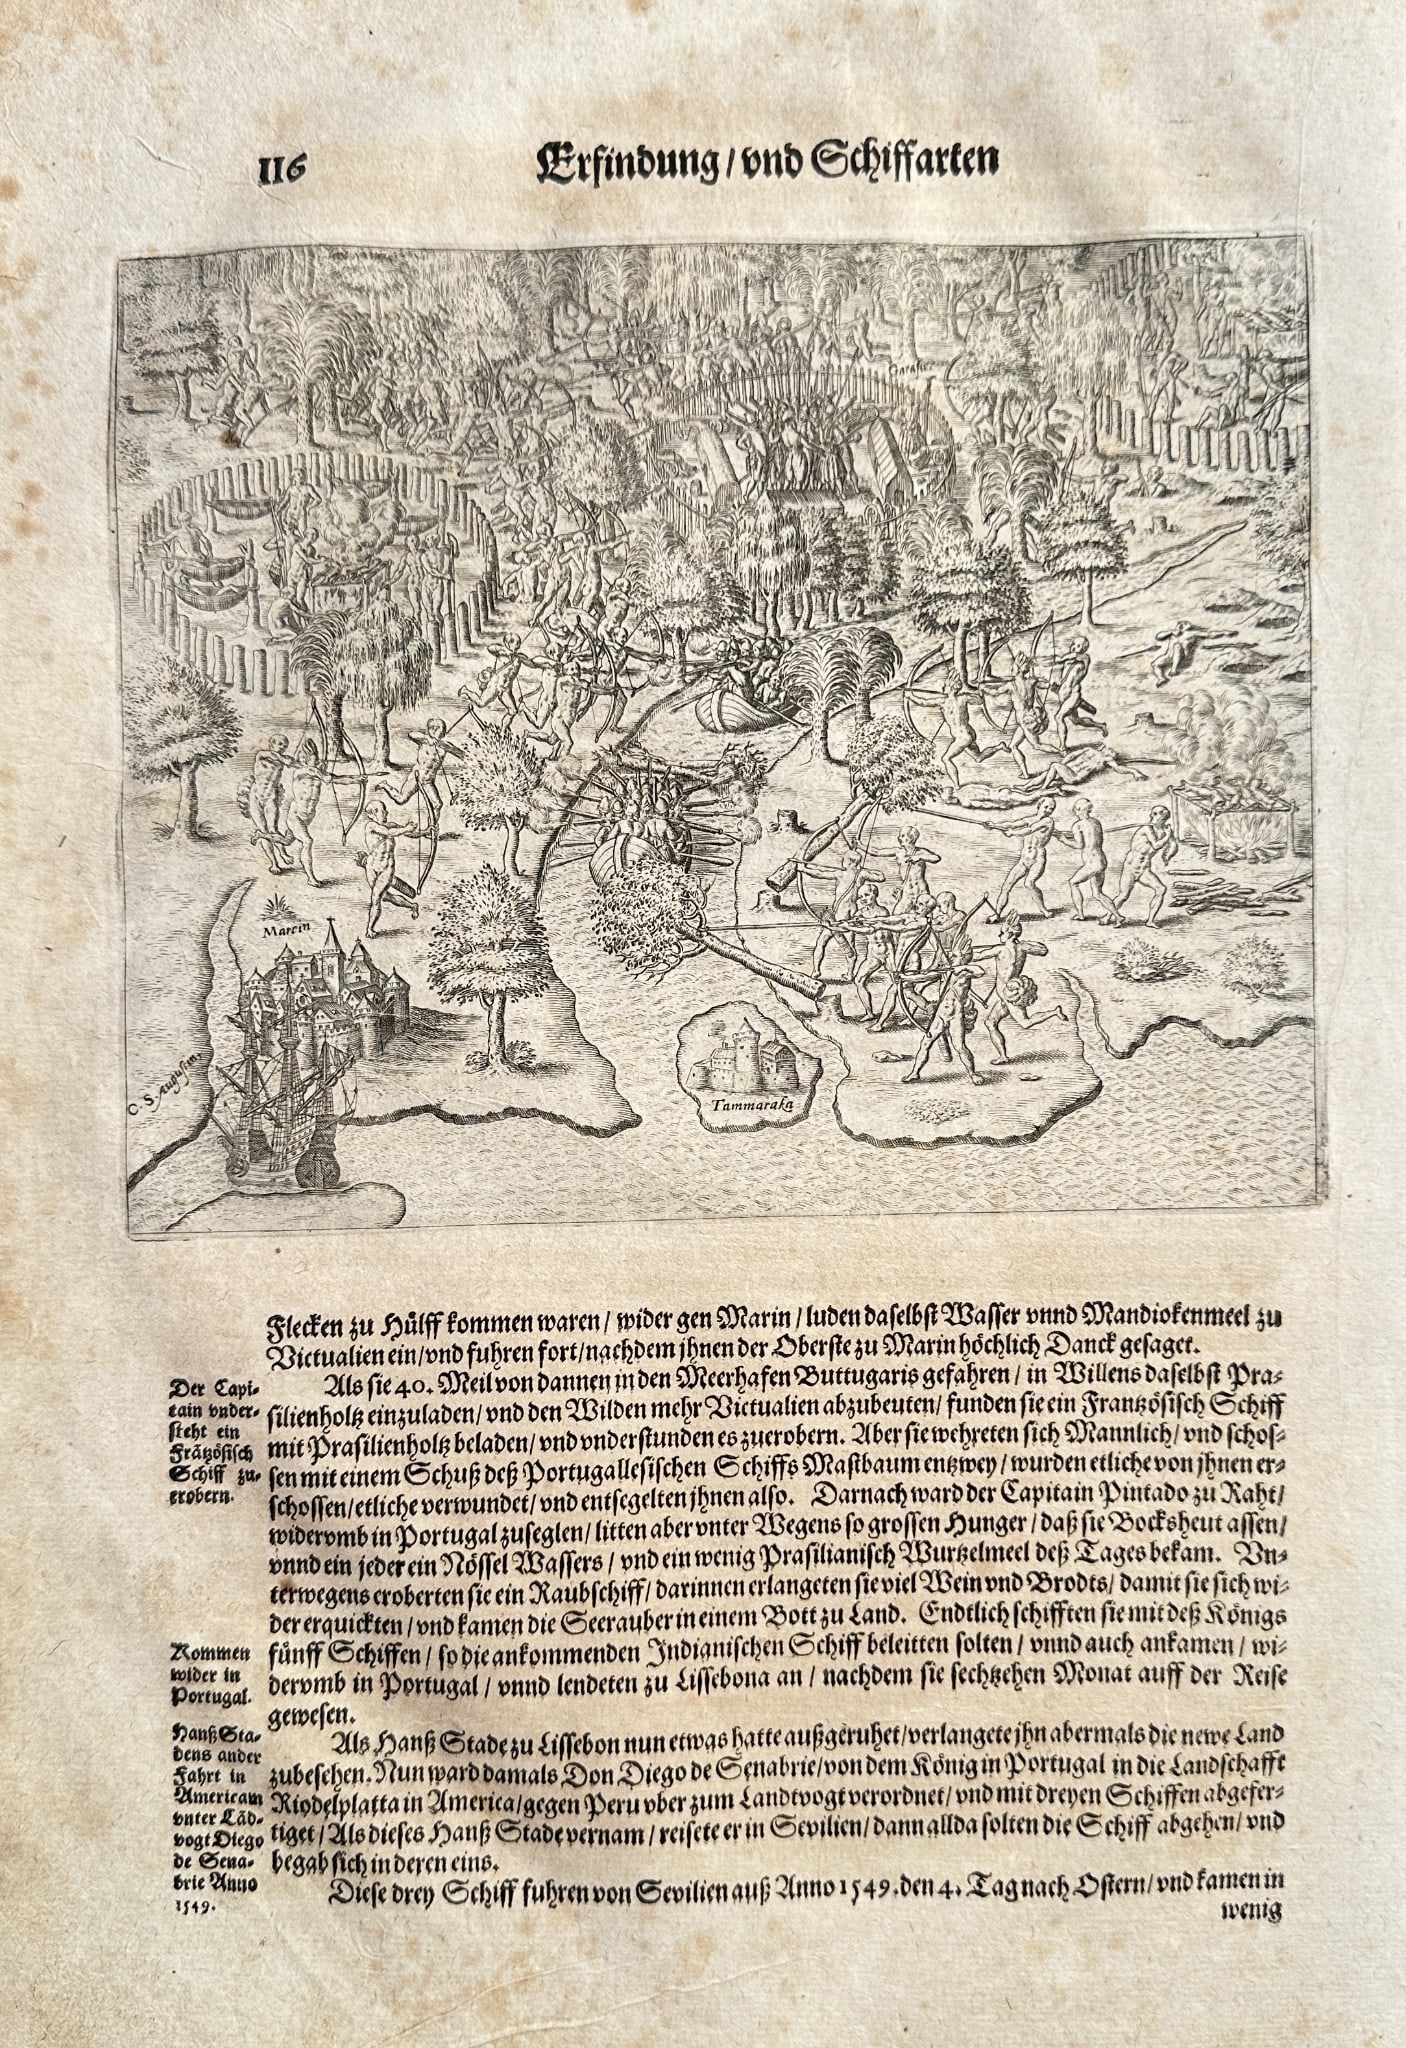 116
Erfindung / vnd Schiffarten
Garasu
Marein
C. S. Augustin.
Tammaraka
Flecken zu Hülff kommen waren / wider gen Marin / luden daselbst Wasser vnnd Mandiokenmeel zu
Victualien ein / vnd fuhren fort / nachdem jhnen der Oberste zu Marin höchlich Danck gesaget.
Der Capi-
tain vnder-
steht ein
Frätzösisch
Schiff zu-
erobern.
Als sie 40. Meil von dannen in den Meerhafen Buttugaris gefahren / in Willens daselbst Pra-
silienholtz einzuladen / vnd den Wilden mehr Victualien abzubeuten / funden sie ein Frantzösisch Schiff
mit Prasilienholtz beladen / vnd vnderstunden es zuerobern. Aber sie wehreten sich Mannlich / vnd schos-
sen mit einem Schuß deß Portugallesischen Schiffs Mastbaum entzwey / wurden etliche von jhnen er-
schossen / etliche verwundet / vnd entsegelten jhnen also. Darnach ward der Capitain Pintado zu Raht /
widervmb in Portugal zuseglen / litten aber vnter Wegens so grossen Hunger / daß sie Bocksheut assen /
vnnd ein jeder ein Nössel Wassers / vnd ein wenig Prasilianisch Wurtzelmeel deß Tages bekam. Vn-
terwegens eroberten sie ein Raubschiff / darinnen erlangeten sie viel Wein vnd Brodts / damit sie sich wi-
der erquickten / vnd kamen die Seerauber in einem Bott zu Land. Endtlich schifften sie mit deß Königs
fünff Schiffen / so die ankommenden Indianischen Schiff beleitten solten / vnnd auch ankamen / wi-
dervmb in Portugal / vnnd lendeten zu Lissebona an / nachdem sie sechtzehen Monat auff der Reise
gewesen.
Kommen
wider in
Portugal.
Hanß Sta-
dens ander
Fahrt in
Americam
vnter Läd-
vogt Diego
de Sena-
brie Anno
1549.
Als Hanß Stade zu Lissebon nun etwas hatte außgeruhet / verlangete jhn abermals die newe Land
zubesehen. Nun ward damals Don Diego de Senabrie / von dem König in Portugal in die Landschafft
Riodelplatta in America / gegen Peru vber zum Landtvogt verordnet / vnd mit dreyen Schiffen abgefer-
tiget / Als dieses Hanß Stade vernam / reisete er in Sevilien / dann allda solten die Schiff abgehen / vnd
begab sich in deren eins.
Diese drey Schiff fuhren von Sevilien auß Anno 1549. den 4. Tag nach Ostern / vnd kamen in
wenig